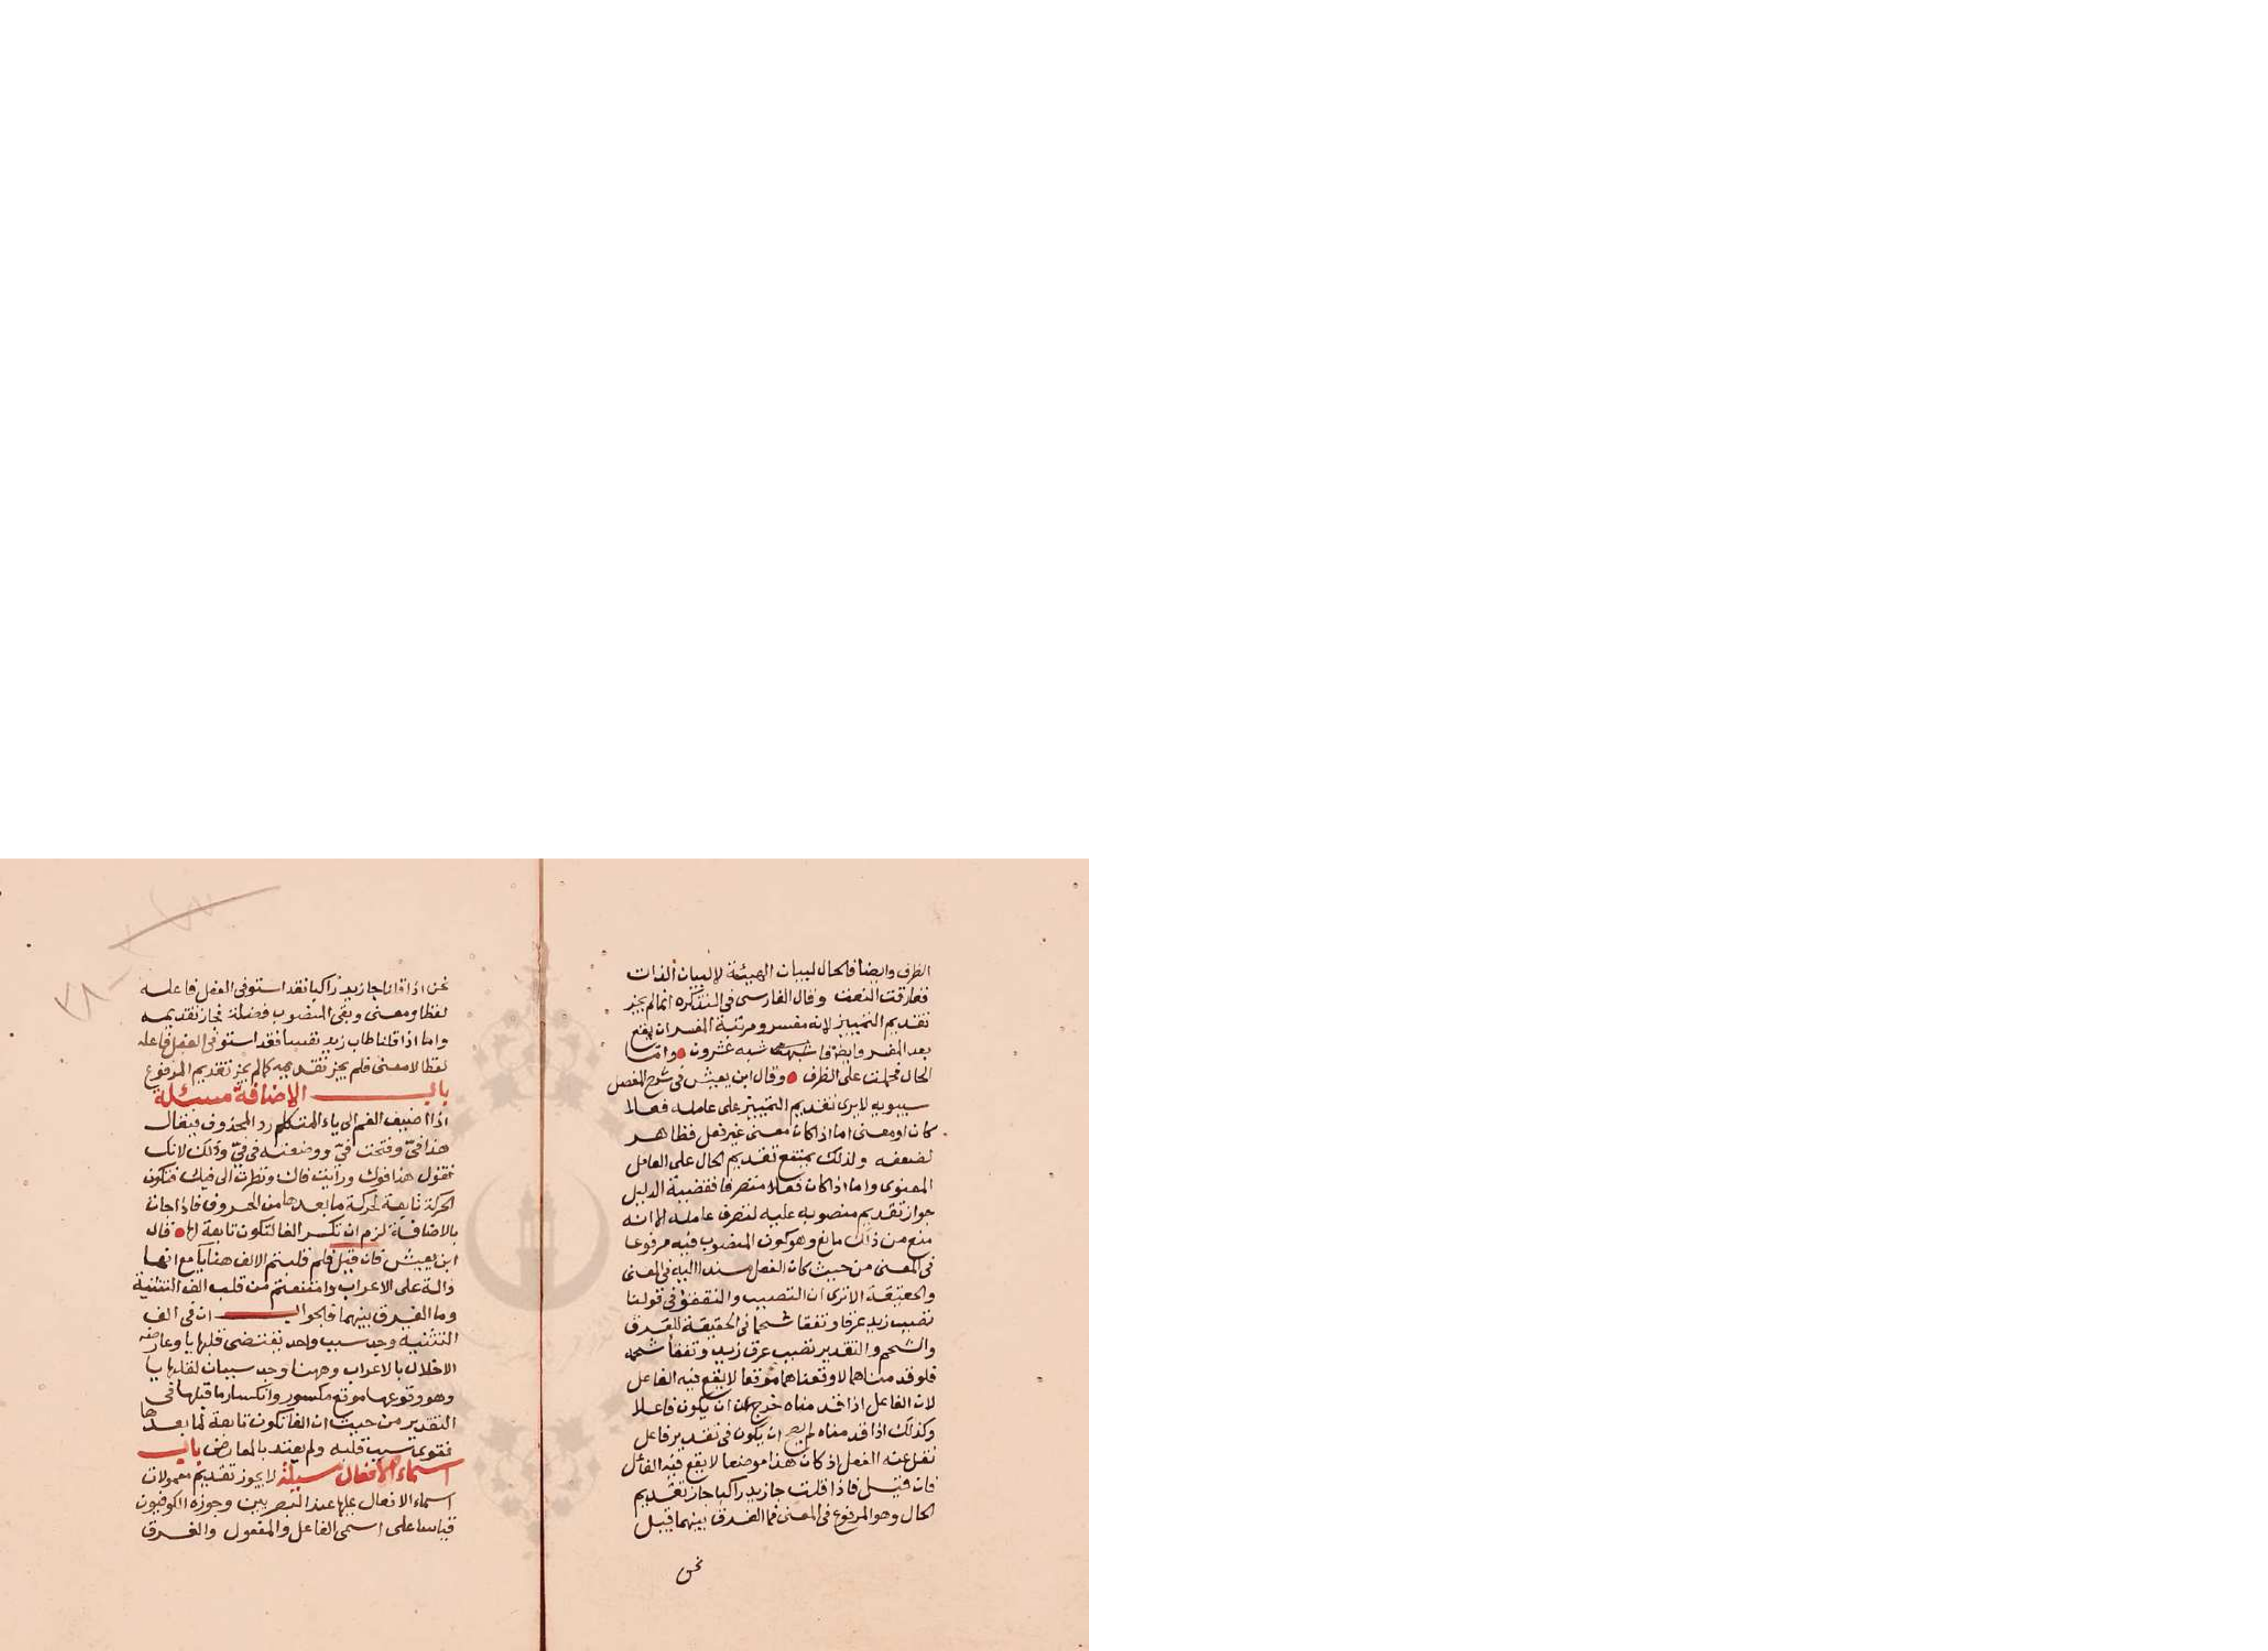 الظرف وايضا فالحال لبيان الهيئة لا لبيان الذات
ففارقت النعت وقال الفارسى فى التذكره انما لم يجز
تقديم التمييز لانه مفسر ومرتبة المفسر ان يقع
بعد المفسر وايضا فاشبهه شبه عشرون وامـا
الحال فحملت على الظرف وقال ابن يعيش فى شرح المفصل
سيبويه لا يرى تقديم التمييز على عامله فعلا
كان او معنى اما اذا كان معنى غير فعل فظاهر
لضعفه ولذلك يمتنع تقديم الحال على العامل
المعنوى واما اذا كان فعلا متصرفا فقضية الدليل
جواز تقديم منصوبه عليه لتصرف عامله الا انه
منع من ذلك مانع وهو كون المنصوب فيه مرفوعا
فى المعنى من حيث كان الفعل مسندا اليه فى المعنى
والحقيقة الا ترى ان التصبب والتفقؤ فى قولنا
تصبب زيد عرقا وتفقا شحما فى الحقيقة للعرق
والشحم والتقدير تصبب عرق زيد وتفقأ شحمه
فلو قدمناهما لاوقعناهما موقعا لا يقع فيه الفاعل
لان الفاعل اذا قدمناه خرج عن ان يكون فاعلا
وكذلك اذا قدمناه لم يصح ان يكون فى تقدير فاعل
نقل عنه الفعل اذ كان هذا موضعا لا يقع فيه الفاعل
فان قيل فاذا قلت جا زيد راكبا جاز تقديم
الحال وهو المرفوع فى المعنى فما الفرق بينهما قيل
نحن
نحن اذا قلنا جا زيد راكبا فقد استوفى الفعل فاعله
لفظا ومعنى وبقى المنصوب فضلة فجاز تقديمه
واما اذا قلنا طاب زيد نفسا فقد استوفى الفعل فاعله
لفظا لا معنى فلم يجز تقديمه كما لم يجز تقديم المرفوع
باب الاضافة مسئلة
اذا اضيف الفم الى ياء المتكلم رد المحذوف فيقال
هذا فىّ وفتحت فىّ ووضعته فى فىّ وذلك لانك
تقول هذا فوك ورأيت فاك ونظرت الى فيك فتكون
الحركة تابعة لحركة ما بعدها من الحروف فاذا جات
بالاضافة لزم ان تكسر الفا لتكون تابعة لها قال
ابن يعيش فان قيل فلم قلبتم الالف هنا يا مع انها
دالة على الاعراب وامتنعتم من قلب الف التثنية
وما الفرق بينهما فالجواب ان فى الف
التثنيه وجد سبب واحد يقتضى قلبها يا وعارضه
الاخلال بالاعراب وههنا وجد سببان لقلبها يا
وهو وقوعها موقع مكسور وانكسار ما قبلها فى
التقدير من حيث ان الفا تكون تابعة لما بعدها
فقوى سبب قلبه ولم يعتد بالمعارض باب
اسماء الافعال مسئلة لا يجوز تقديم معمولات
اسماء الافعال عليها عند البصريين وجوزه الكوفيون
قياسا على اسمى الفاعل والمفعول والفرق